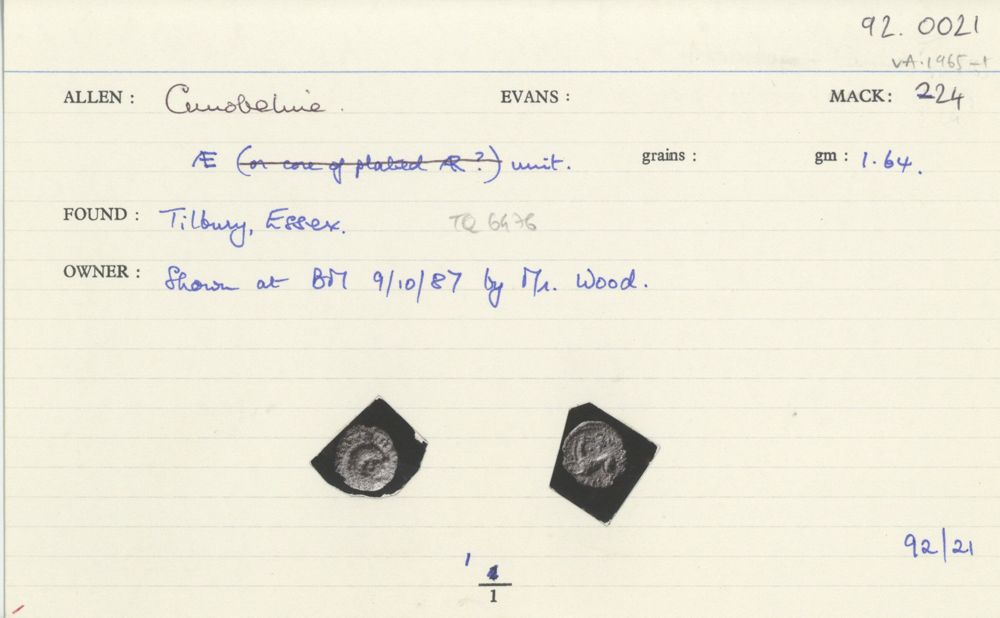 92. 0021
VA·1965-1
ALLEN : Cunobeline. EVANS : MACK: 224
Æ (or core of plated AR ?) unit. grains : gm : 1.64.
FOUND : Tilbury, Essex. TQ 6476
OWNER : Shown at BM 9/10/87 by Mr. Wood.
92/21
1
1